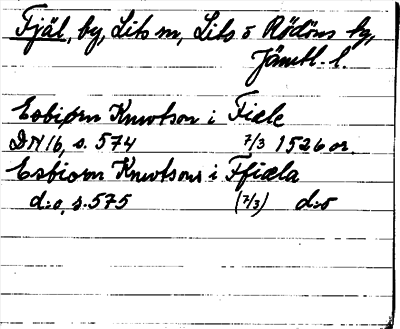 Fjäl, by, Lits sn, Lits o Rödöns tg,
Jämtl. l.
Esbiørn Knwtson i Fiæle
DN 16, s. 574 7/3 1526 or.
Esbiorn Knwtsons i Ffiæla
d:o, s. 575 (7/3) d:o